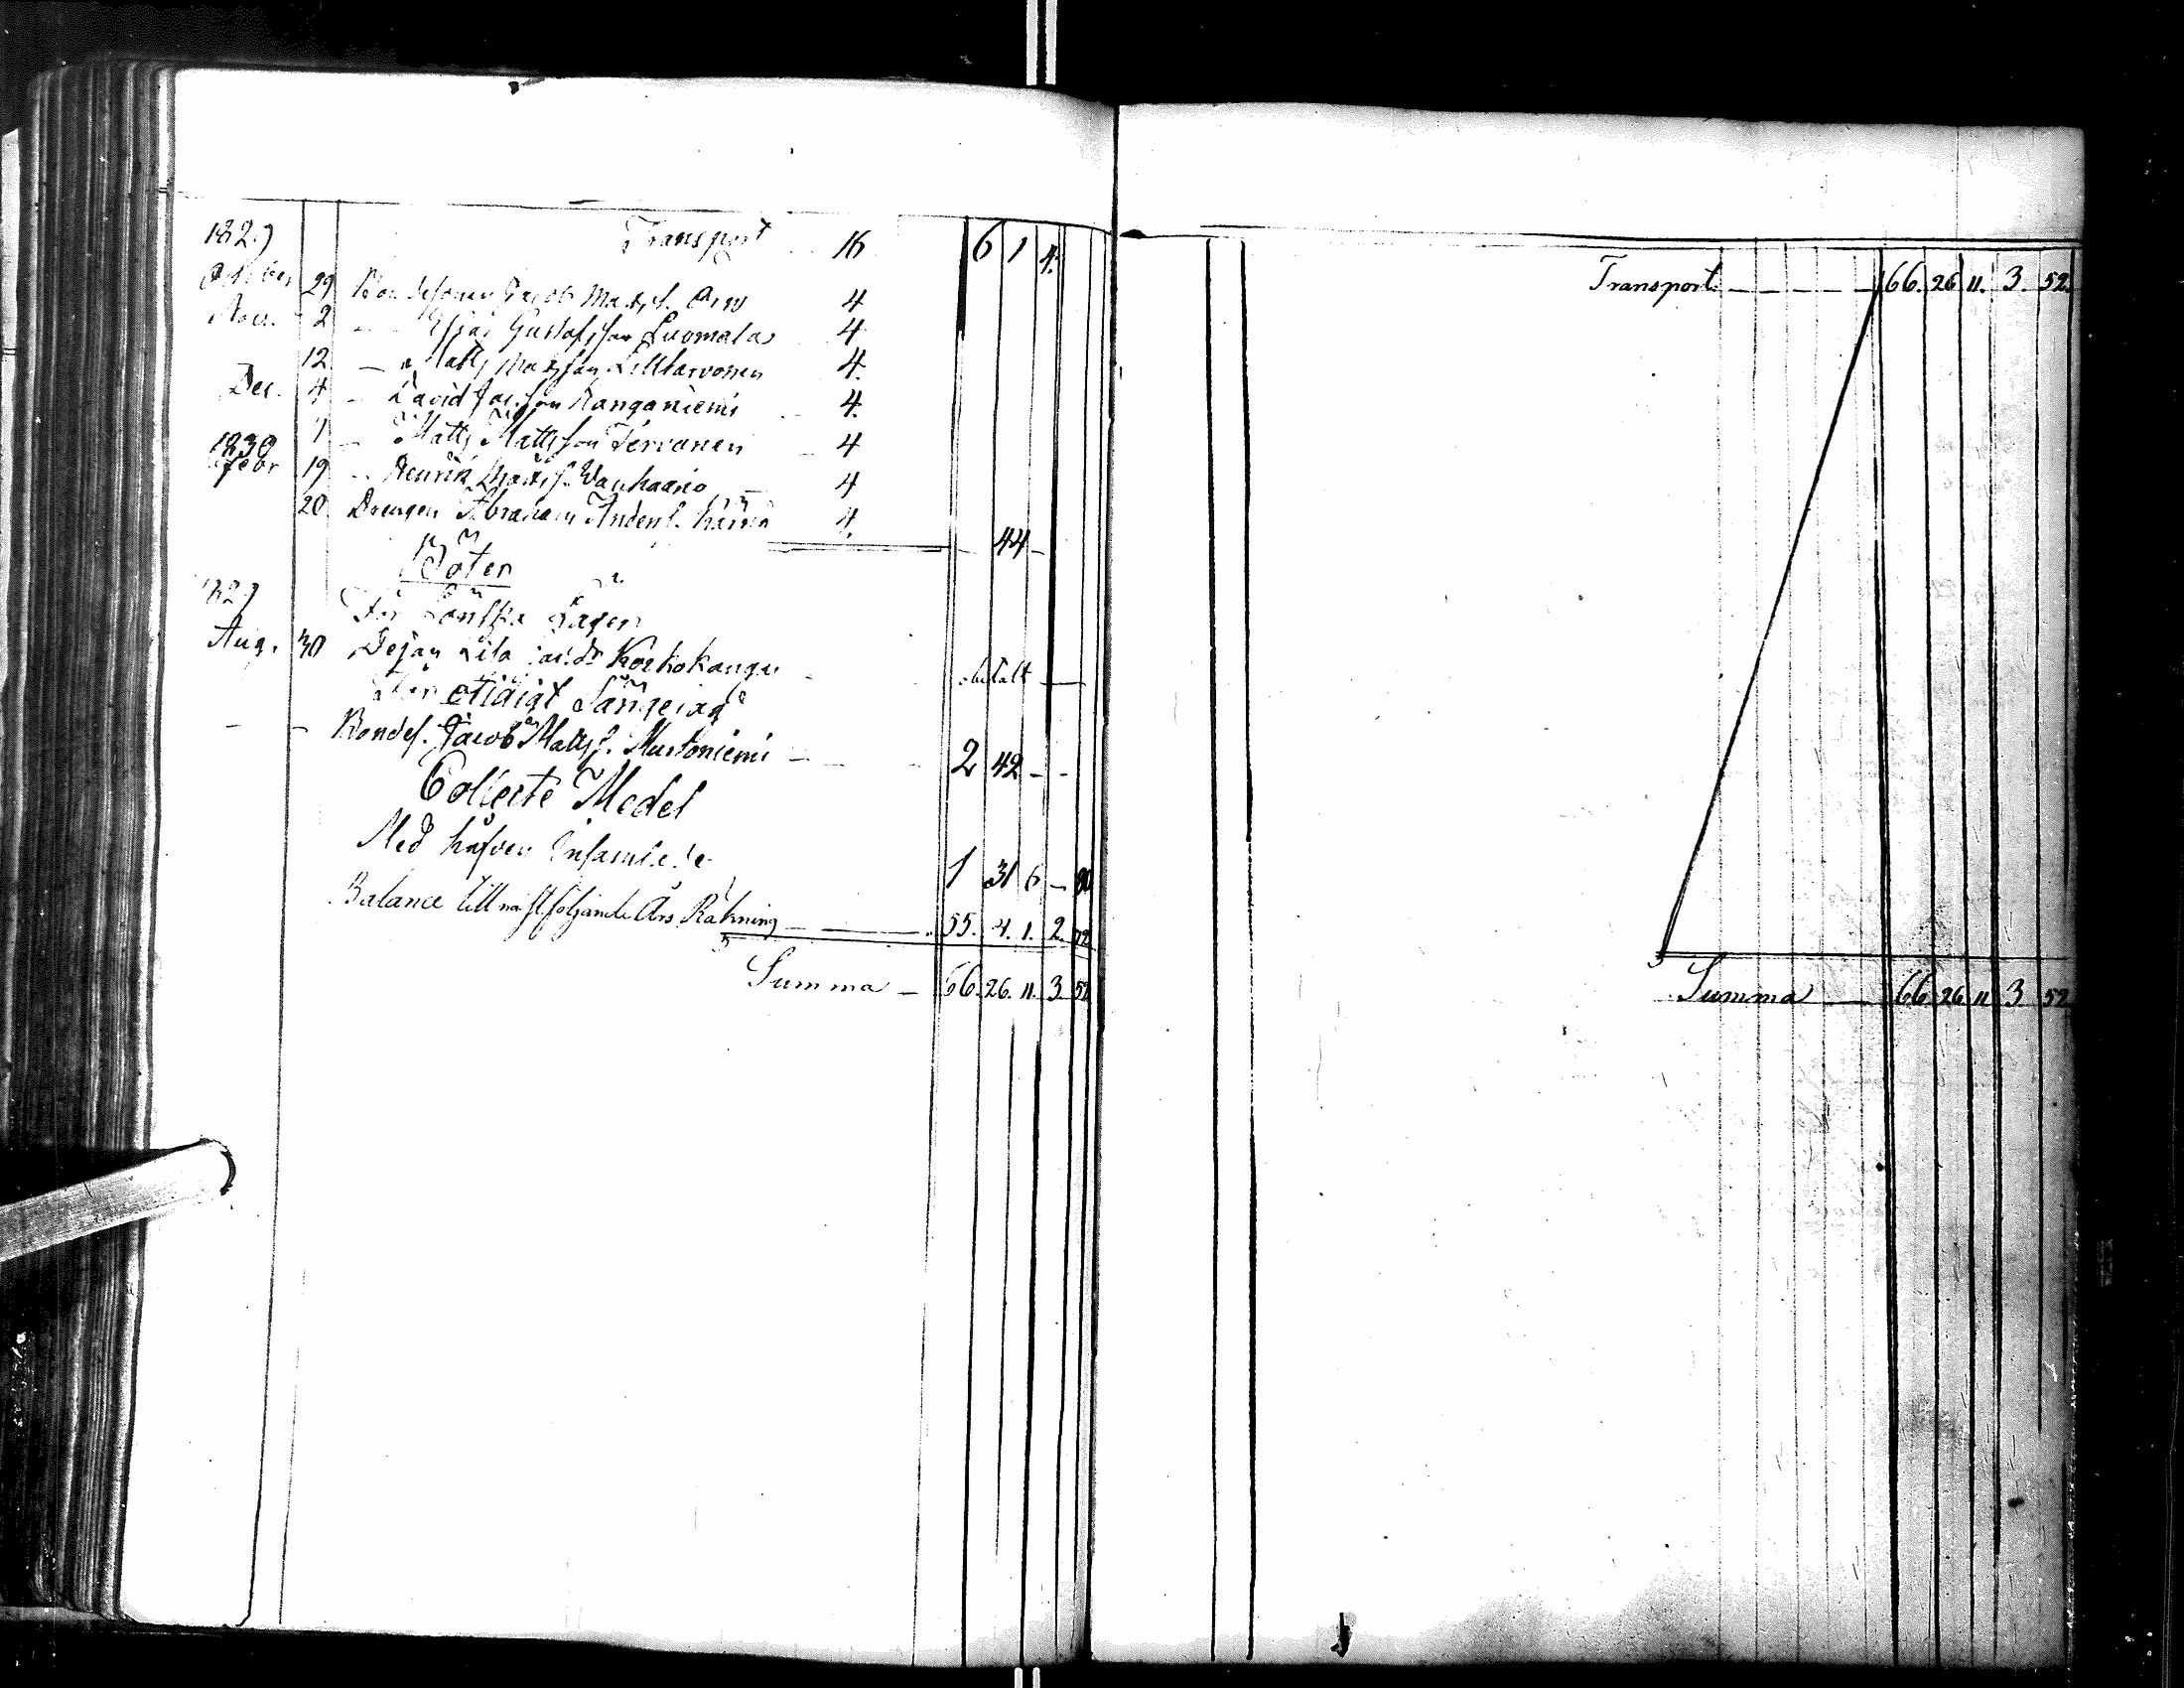 1829 Transport 16 6 1 4.
October 29 Bondesonen Jacob Matss. Orro 4
Nov. 2 — Elias Gustafsson Luomala 4
12 — Matts Matsson Lilltarvonen 4.
Dec. 4 — David Jacsson Kanganiemi 4.
7 — Matts Mattsson Tervonen 4
1830
Febr 19 — Henrik Matss. Wanhaaio 4
20 Drengen Abraham Anderss. 4. 44
Böter
1829 För Lönska Läger
Aug. 30 Pigan Lisa Kockokangas obetalt
För otidigt Sängelag
— — Bondes. Jacob Mattss. Mustoniemi 2 42
Collecte Medel
Med håfven Insamlade 1 31 6 — 80
Balance till nästföljande Års Räkning 55. 4. 1. 2. 72
Summa 66. 26. 11. 3. 52
Transport 66. 26 11. 3. 52.
Summa 66. 26 11 3. 52